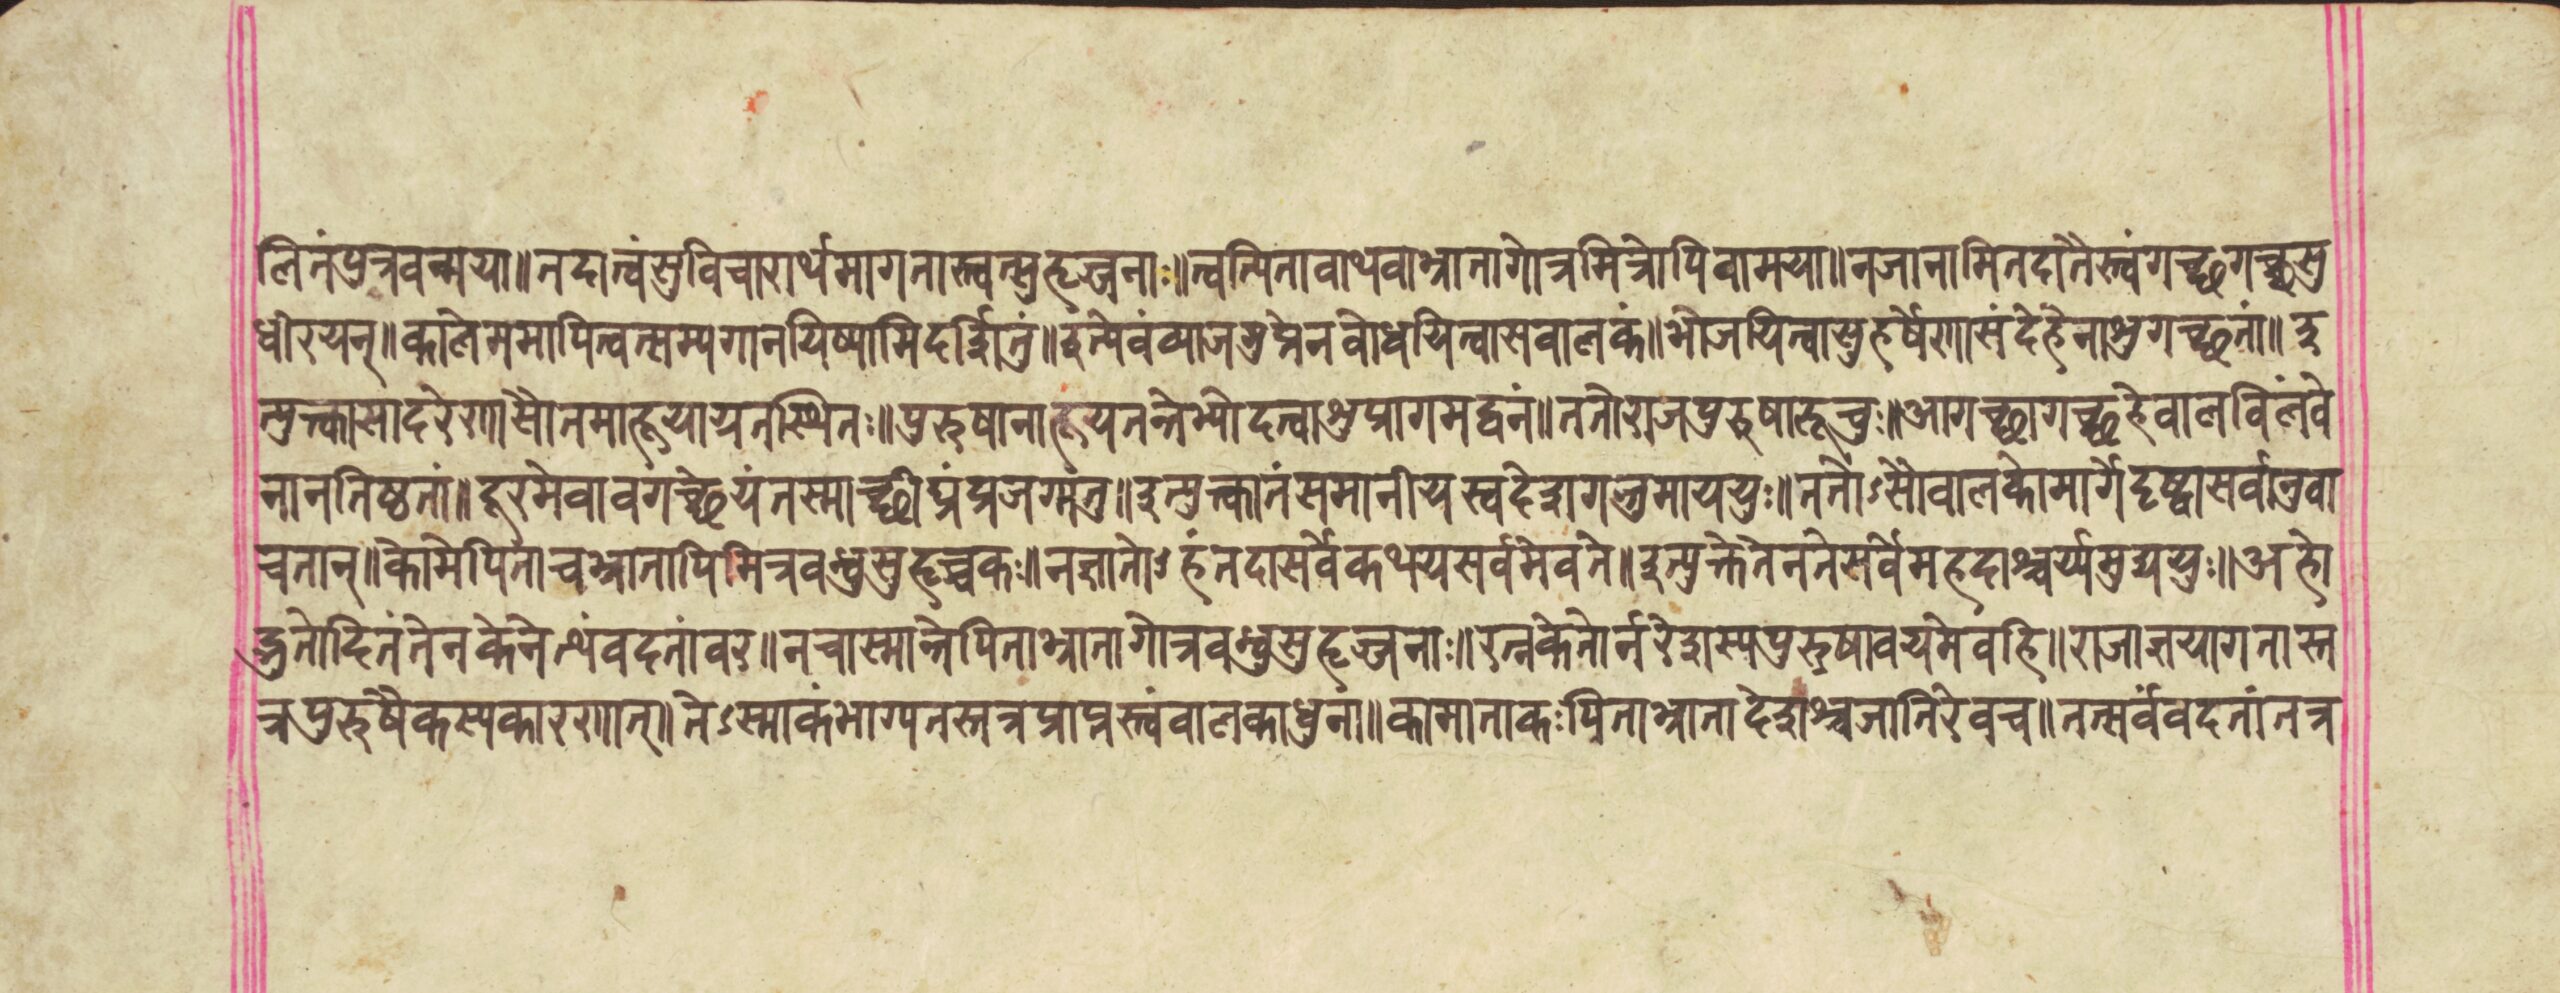 लितंपुत्रवन्मया॥तदात्वंसुविचारार्थमागतास्त्वत्सुहृज्जनाः॥त्वत्पितावाथवाभ्रातागोत्रमित्रोपिवामया॥नजानामितदातैस्त्वंगच्छगच्छसु
धीरयन्॥कालेममापित्वत्सम्यगानयिष्यामिदर्शितुं॥इत्येवंव्याजसुप्तेनवोधयित्वासवालकं॥भोजयित्वासुहर्षेणसंदेहेनाशुगच्छतां॥इ
त्युक्त्वासादरेणासौतमाहूयायतस्थितः॥पुरुषानाहूयतन्तेभ्योदत्वाशुप्रागमद्वनं॥ततोराजपुरुषाहूचुः॥आगच्छागच्छहेवालविलंवे
नानतिष्ठतां॥दूरमेवावगच्छेयंतस्माच्छीघ्रंप्रजग्मंतु॥इत्युक्त्वातंसमानीयस्वदेशगन्तुमाययुः॥ततोऽसौवालकोमार्गेदृष्ट्वासर्वानुवा
चतान्॥कोमेपिताचभ्रातापिमित्रवन्धुसुहृच्चकः॥नज्ञातोऽहंतदासर्वेकथयसर्वमेवते॥इत्युक्तेतेनतेसर्वेमहदाश्चर्य्यमुद्ययुः॥अहो
द्भुतोदितंतेनकेनेत्थंवदतांवर॥नचास्मान्तेपिताभ्रातागोत्रवन्धुसुहृज्जनाः॥रत्नकेतोर्नरेशस्यपुरुषावयमेवहि॥राजाज्ञयागतास्त
त्रपुरुषैकस्यकारणात्॥तेऽस्माकंभाग्यतस्तत्रप्राप्तस्त्वंवालकाधुना॥कामाताकःपिताभ्रातादेशश्चजातिरेवच॥तत्सर्वंवदतांतत्र